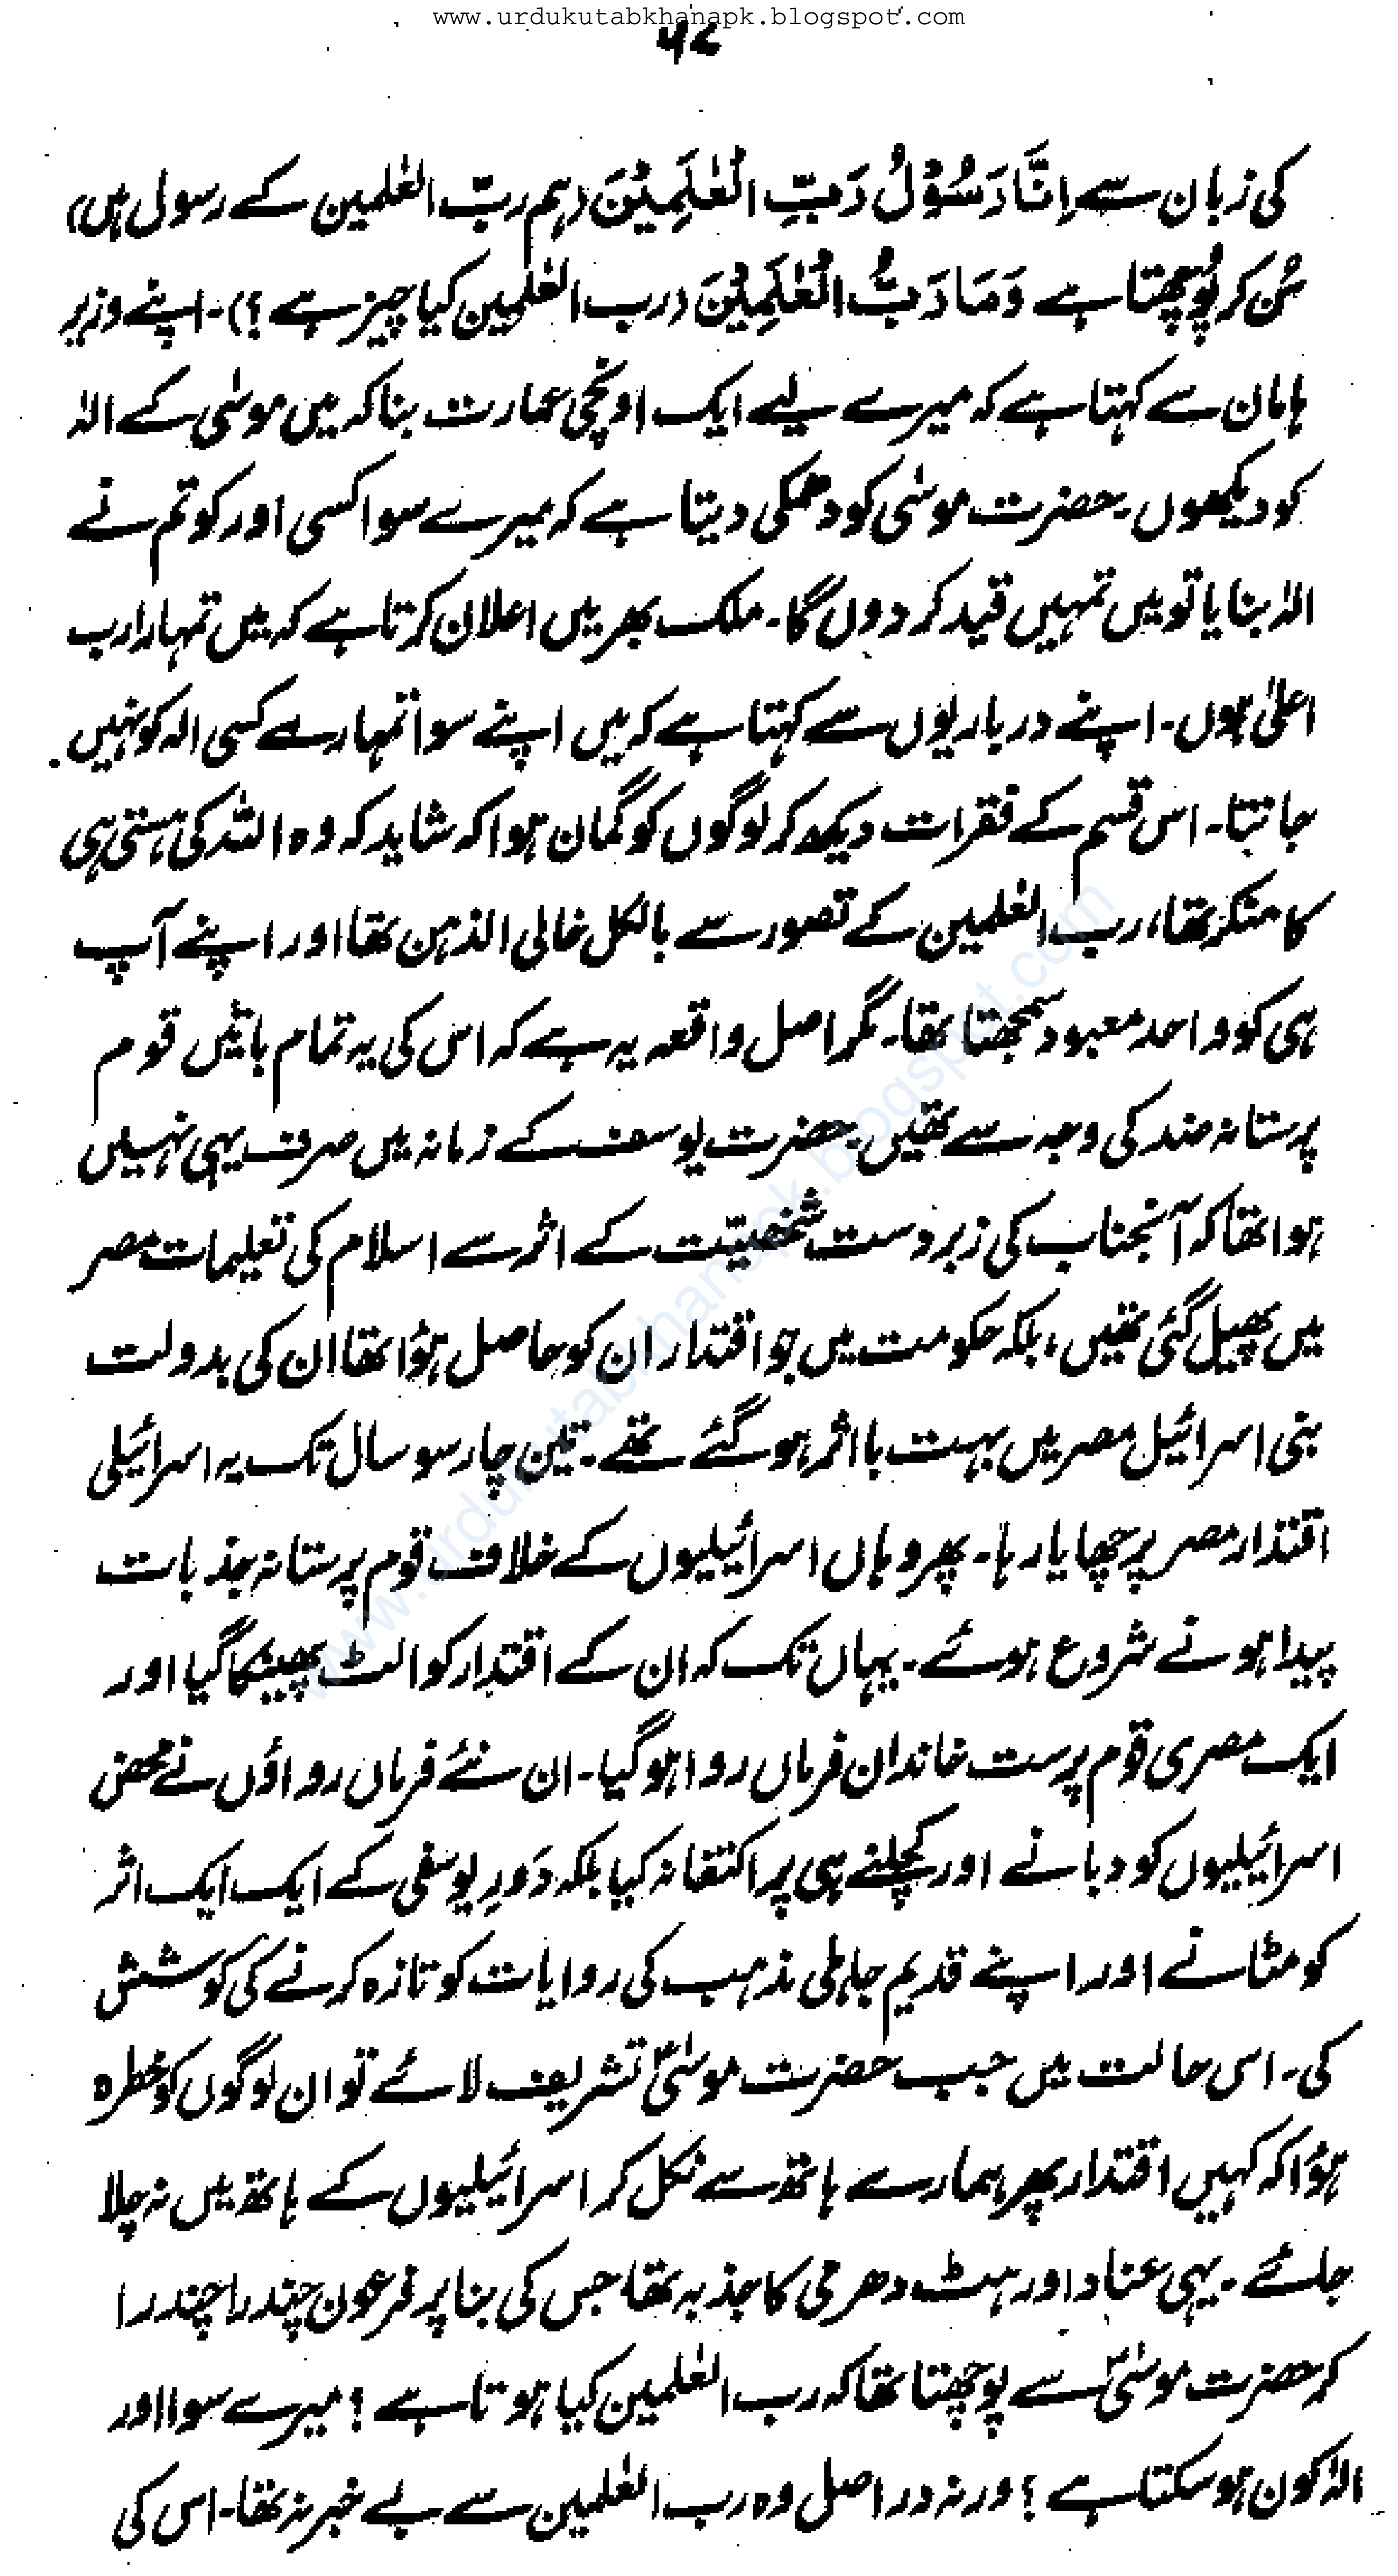 www.urdukutabkhanapk.blogspot.com
۵۷
کی زبان سے اِنَّا رَسُوْلُ رَبِّ الْعٰلَمِیْنَ (ہم ربّ العٰلمین کے رسول ہیں)
سُن کر پُوچھتا ہے وَمَا رَبُّ الْعٰلَمِیْنَ (رب العٰلمین کیا چیز ہے؟)۔ اپنے وزیر
ہامان سے کہتا ہے کہ میرے لیے ایک اونچی عمارت بنا کہ میں موسٰی کے الٰہ
کو دیکھوں۔ حضرت موسٰی کو دھمکی دیتا ہے کہ میرے سوا کسی اور کو تم نے
الٰہ بنایا تو میں تمہیں قید کر دوں گا۔ ملک بھر میں اعلان کرتا ہے کہ میں تمہارا رب
اعلیٰ ہوں۔ اپنے درباریوں سے کہتا ہے کہ میں اپنے سوا تمہارے کسی الہ کو نہیں
جانتا۔ اس قسم کے فقرات دیکھ کر لوگوں کو گمان ہوا کہ شاید کہ وہ اللہ کی ہستی ہی
کا منکر تھا، رب العٰلمین کے تصور سے بالکل خالی الذہن تھا اور اپنے آپ
ہی کو واحد معبود سمجھتا تھا۔ مگر اصل واقعہ یہ ہے کہ اس کی یہ تمام باتیں قوم
پرستانہ ضد کی وجہ سے تھیں۔ حضرت یوسف کے زمانہ میں صرف یہی نہیں
ہوا تھا کہ آنجناب کی زبردست شخصیّت کے اثر سے اسلام کی تعلیمات مصر
میں پھیل گئی تھیں، بلکہ حکومت میں جو اقتدار ان کو حاصل ہؤا تھا ان کی بدولت
بنی اسرائیل مصر میں بہت با اثر ہو گئے تھے۔ تین چار سو سال تک یہ اسرائیلی
اقتدار مصر پر چھایا رہا۔ پھر وہاں اسرائیلیوں کے خلاف قوم پرستانہ جذبات
پیدا ہونے شروع ہوئے۔ یہاں تک کہ ان کے اقتدار کو الٹ پھینکا گیا اور
ایک مصری قوم پرست خاندان فرماں روا ہو گیا۔ ان نئے فرماں رواؤں نے محض
اسرائیلیوں کو دبانے اور کچلنے ہی پر اکتفا نہ کیا بلکہ دَورِ یوسفی کے ایک ایک اثر
کو مٹانے اور اپنے قدیم جاہلی مذہب کی روایات کو تازہ کرنے کی کوشش
کی۔ اسی حالت میں جب حضرت موسٰیؑ تشریف لائے تو ان لوگوں کو خطرہ
ہؤا کہ کہیں اقتدار پھر ہمارے ہاتھ سے نکل کر اسرائیلیوں کے ہاتھ میں نہ چلا
جائے۔ یہی عناد اور ہٹ دھرمی کا جذبہ تھا جس کی بنا پر فرعون چندرا چندرا
کر حضرت موسٰیؑ سے پوچھتا تھا کہ رب العٰلمین کیا ہوتا ہے؟ میرے سوا اور
الٰہ کون ہو سکتا ہے؟ ورنہ دراصل وہ رب العٰلمین سے بے خبر نہ تھا۔ اس کی
www.urdukutabkhanapk.blogspot.com